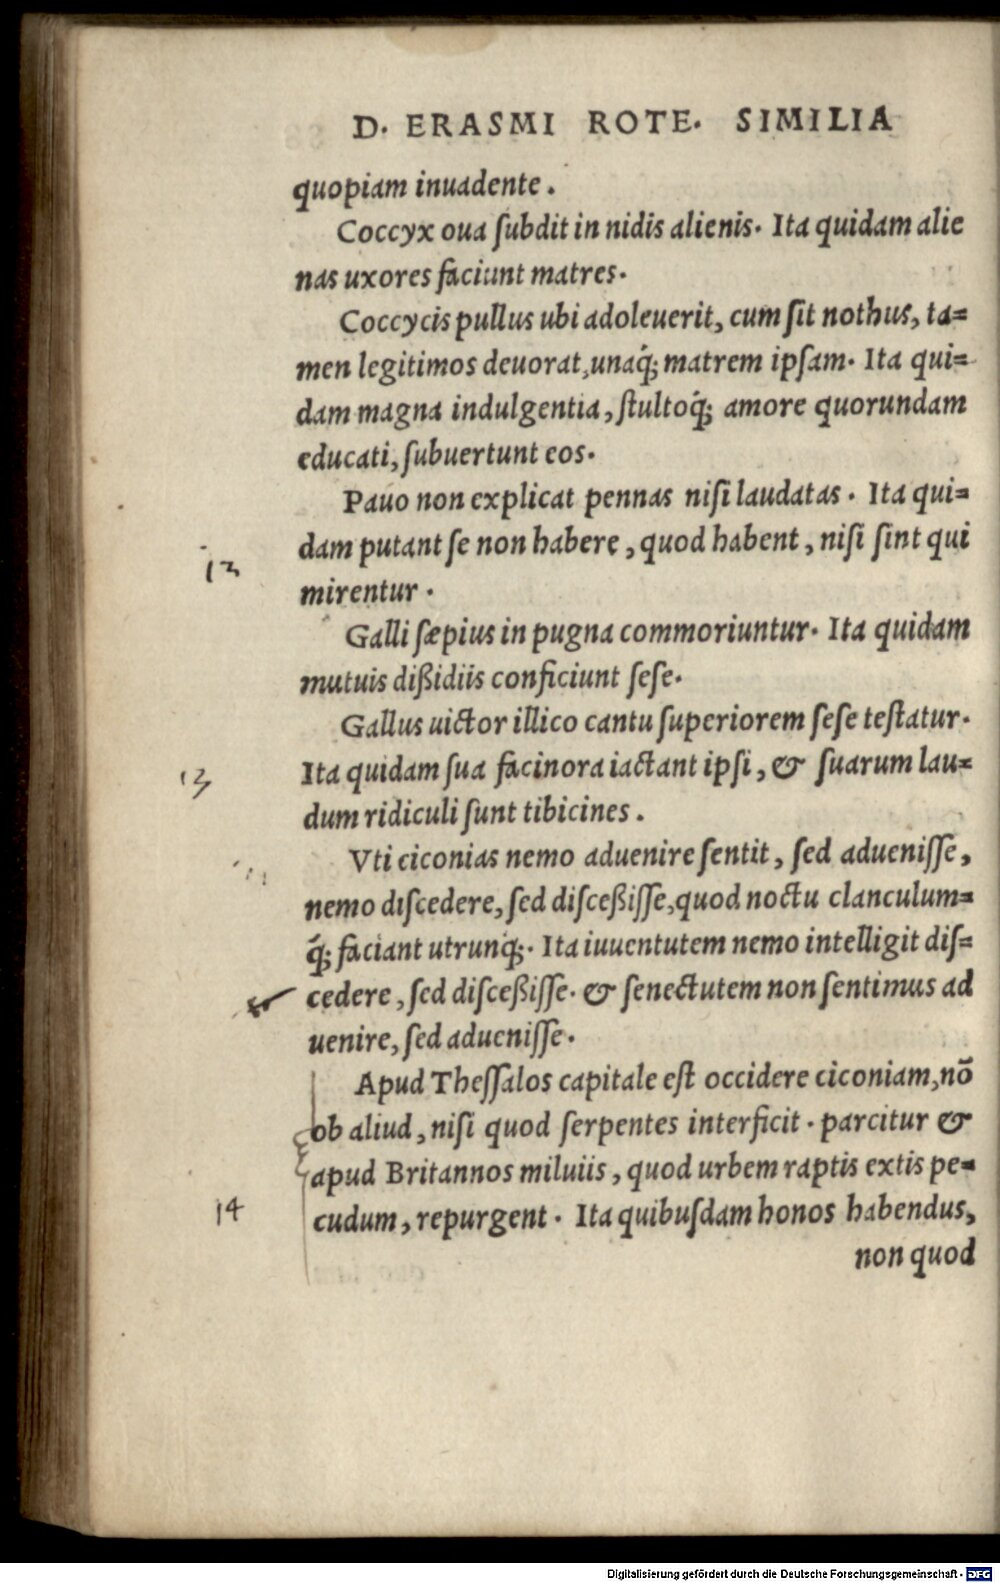 D. ERASMI ROTE. SIMILIA
quopiam inuadente.
Coccyx oua ſubdit in nidis alienis. Ita quidam alie
nas uxores faciunt matres.
Coccycis pullus ubi adoleuerit, cum ſit nothus, ta=
men legitimos deuorat, unaq́; matrem ipſam. Ita qui=
dam magna indulgentia, ſtultoq́; amore quorundam
educati, ſubuertunt eos.
Pauo non explicat pennas niſi laudatas. Ita qui=
dam putant ſe non habere, quod habent, niſi ſint qui
mirentur.
12
Galli ſæpius in pugna commoriuntur. Ita quidam
mutuis dißidiis conficiunt ſeſe.
Gallus uictor illico cantu ſuperiorem ſeſe teſtatur.
Ita quidam ſua facinora iactant ipſi, & ſuarum lau=
13
dum ridiculi ſunt tibicines.
Vti ciconias nemo aduenire ſentit, ſed adueniſſe,
nemo diſcedere, ſed diſceßiſſe, quod noctu clanculum=
q́; faciant utrunq;. Ita iuuentutem nemo intelligit diſ=
cedere, ſed diſceßiſſe. & ſenectutem non ſentimus ad
uenire, ſed adueniſſe.
Apud Theſſalos capitale eſt occidere ciconiam, nō
ob aliud, niſi quod ſerpentes interficit. parcitur &
apud Britannos miluiis, quod urbem raptis extis pe=
cudum, repurgent. Ita quibuſdam honos habendus,
14
non quod
Digitalisierung gefördert durch die Deutsche Forschungsgemeinschaft - DFG